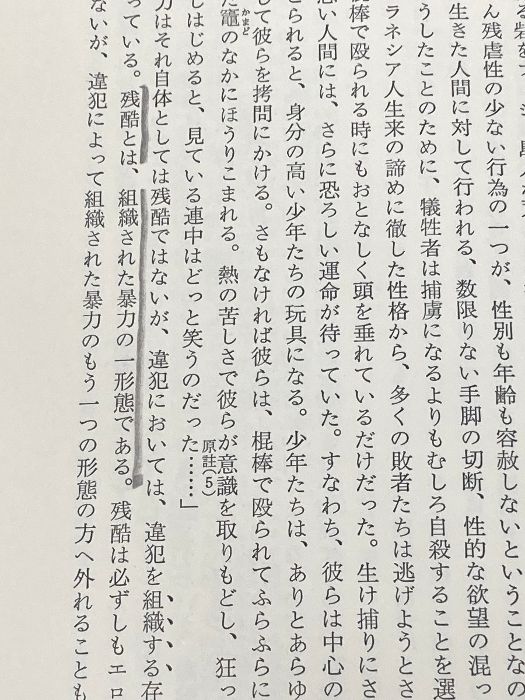 る岩を
ん残虐性の少ない行為の一つが、性別も年齢も容赦しないということなの
生きた人間に対して行われる、数限りない手脚の切断、性的な欲望の混っ
うしたことのために、犠牲者は捕虜になるよりもむしろ自殺することを選
ラネシア人生来の諦めに徹した性格から、多くの敗者たちは逃げようとさ
棍棒で殴られる時にもおとなしく頭を垂れているだけだった。生け捕りにさ
悪い人間には、さらに恐ろしい運命が待っていた。すなわち、彼らは中心の
とられると、身分の高い少年たちの玩具になる。少年たちは、ありとあらゆ
して彼らを拷問にかける。さもなければ彼らは、棍棒で殴られてふらふらに
かまど
た竈のなかにほうりこまれる。熱の苦しさで彼らが意識を取りもどし、狂っ
原註(5)
しはじめると、見ている連中はどっと笑うのだった……」
力はそれ自体としては残酷ではないが、違犯においては、違犯を組織する存
っている。残酷とは、組織された暴力の一形態である。残酷は必ずしもエロ
ないが、違犯によって組織された暴力のもう一つの形態の方へ外れることも